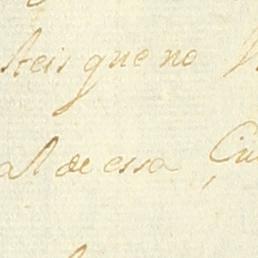 steis que no
al de essa Ciu